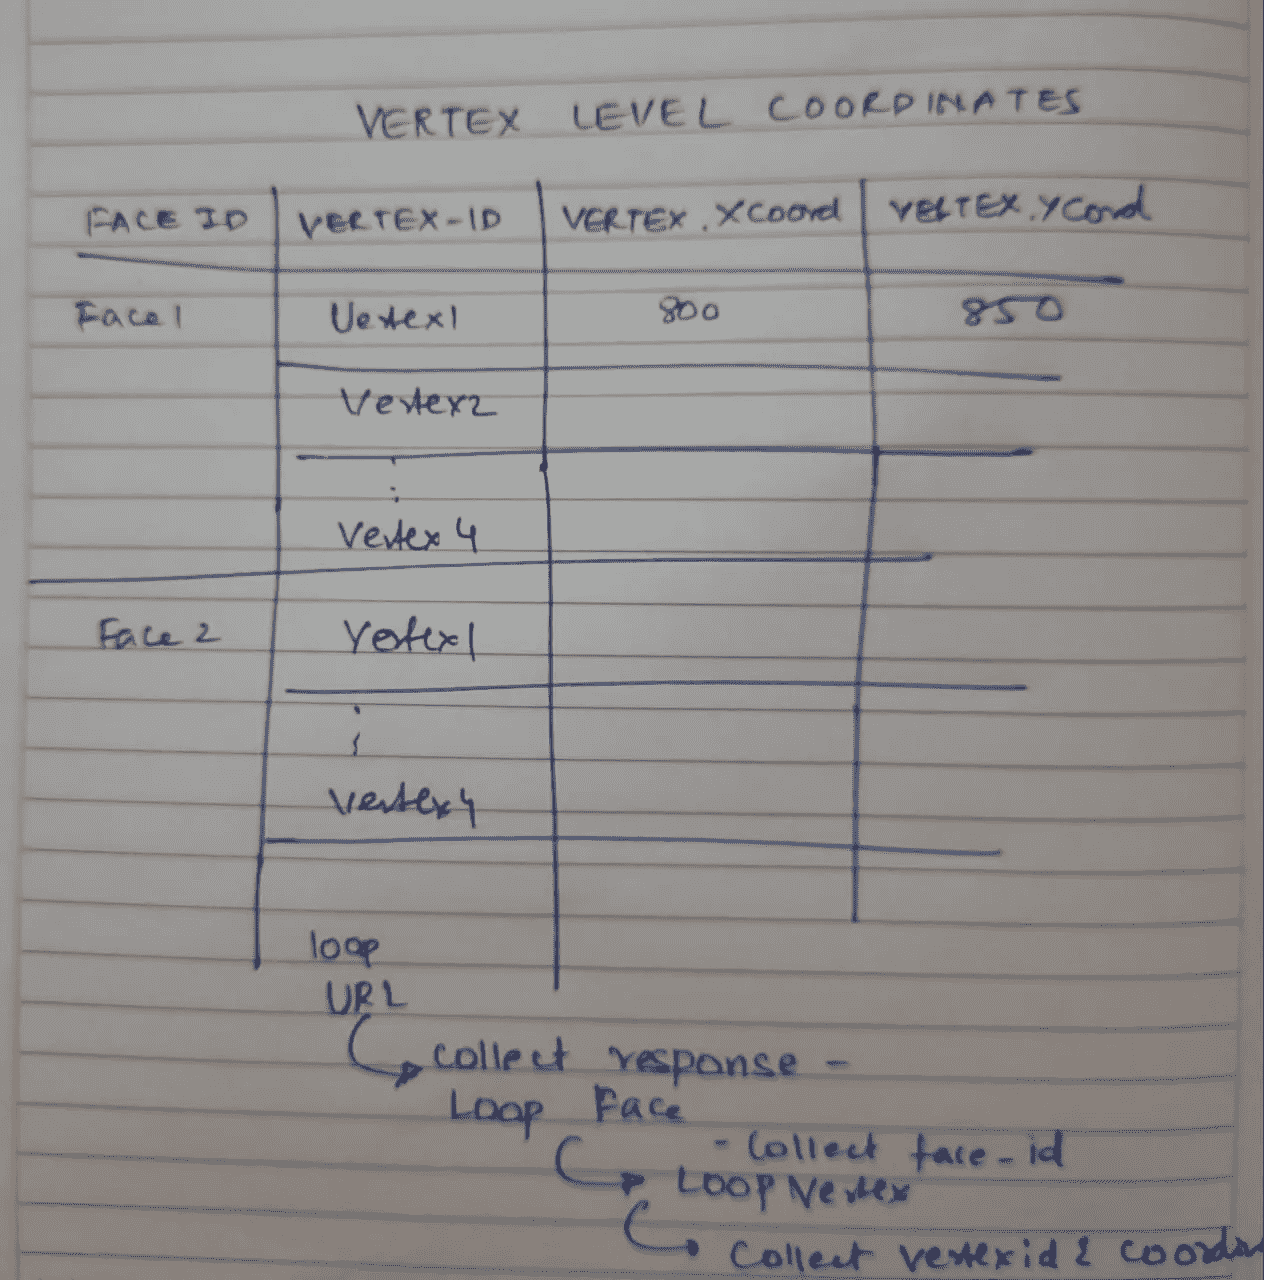 VERTEX LEVEL COORDINATES
FACE ID VERTEX-ID VERTEX.XCoord VERTEX.YCoord
Face 1 Vertex1 800 850
Vertex2
:
Vertex 4
Face 2 Vertex1
:
Vertex4
loop
URL
collect response -
Loop Face
- Collect face-id
Loop Vertex
Collect vertex id &